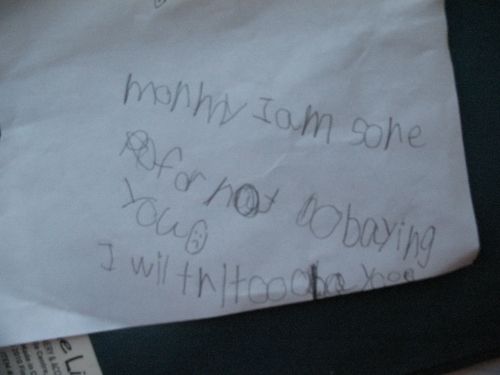 monhhy I am sore
for not obaying
you
I wil tri too oba you
e Li